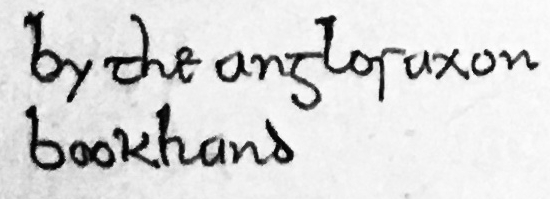 by the angloſaxon
bookhand